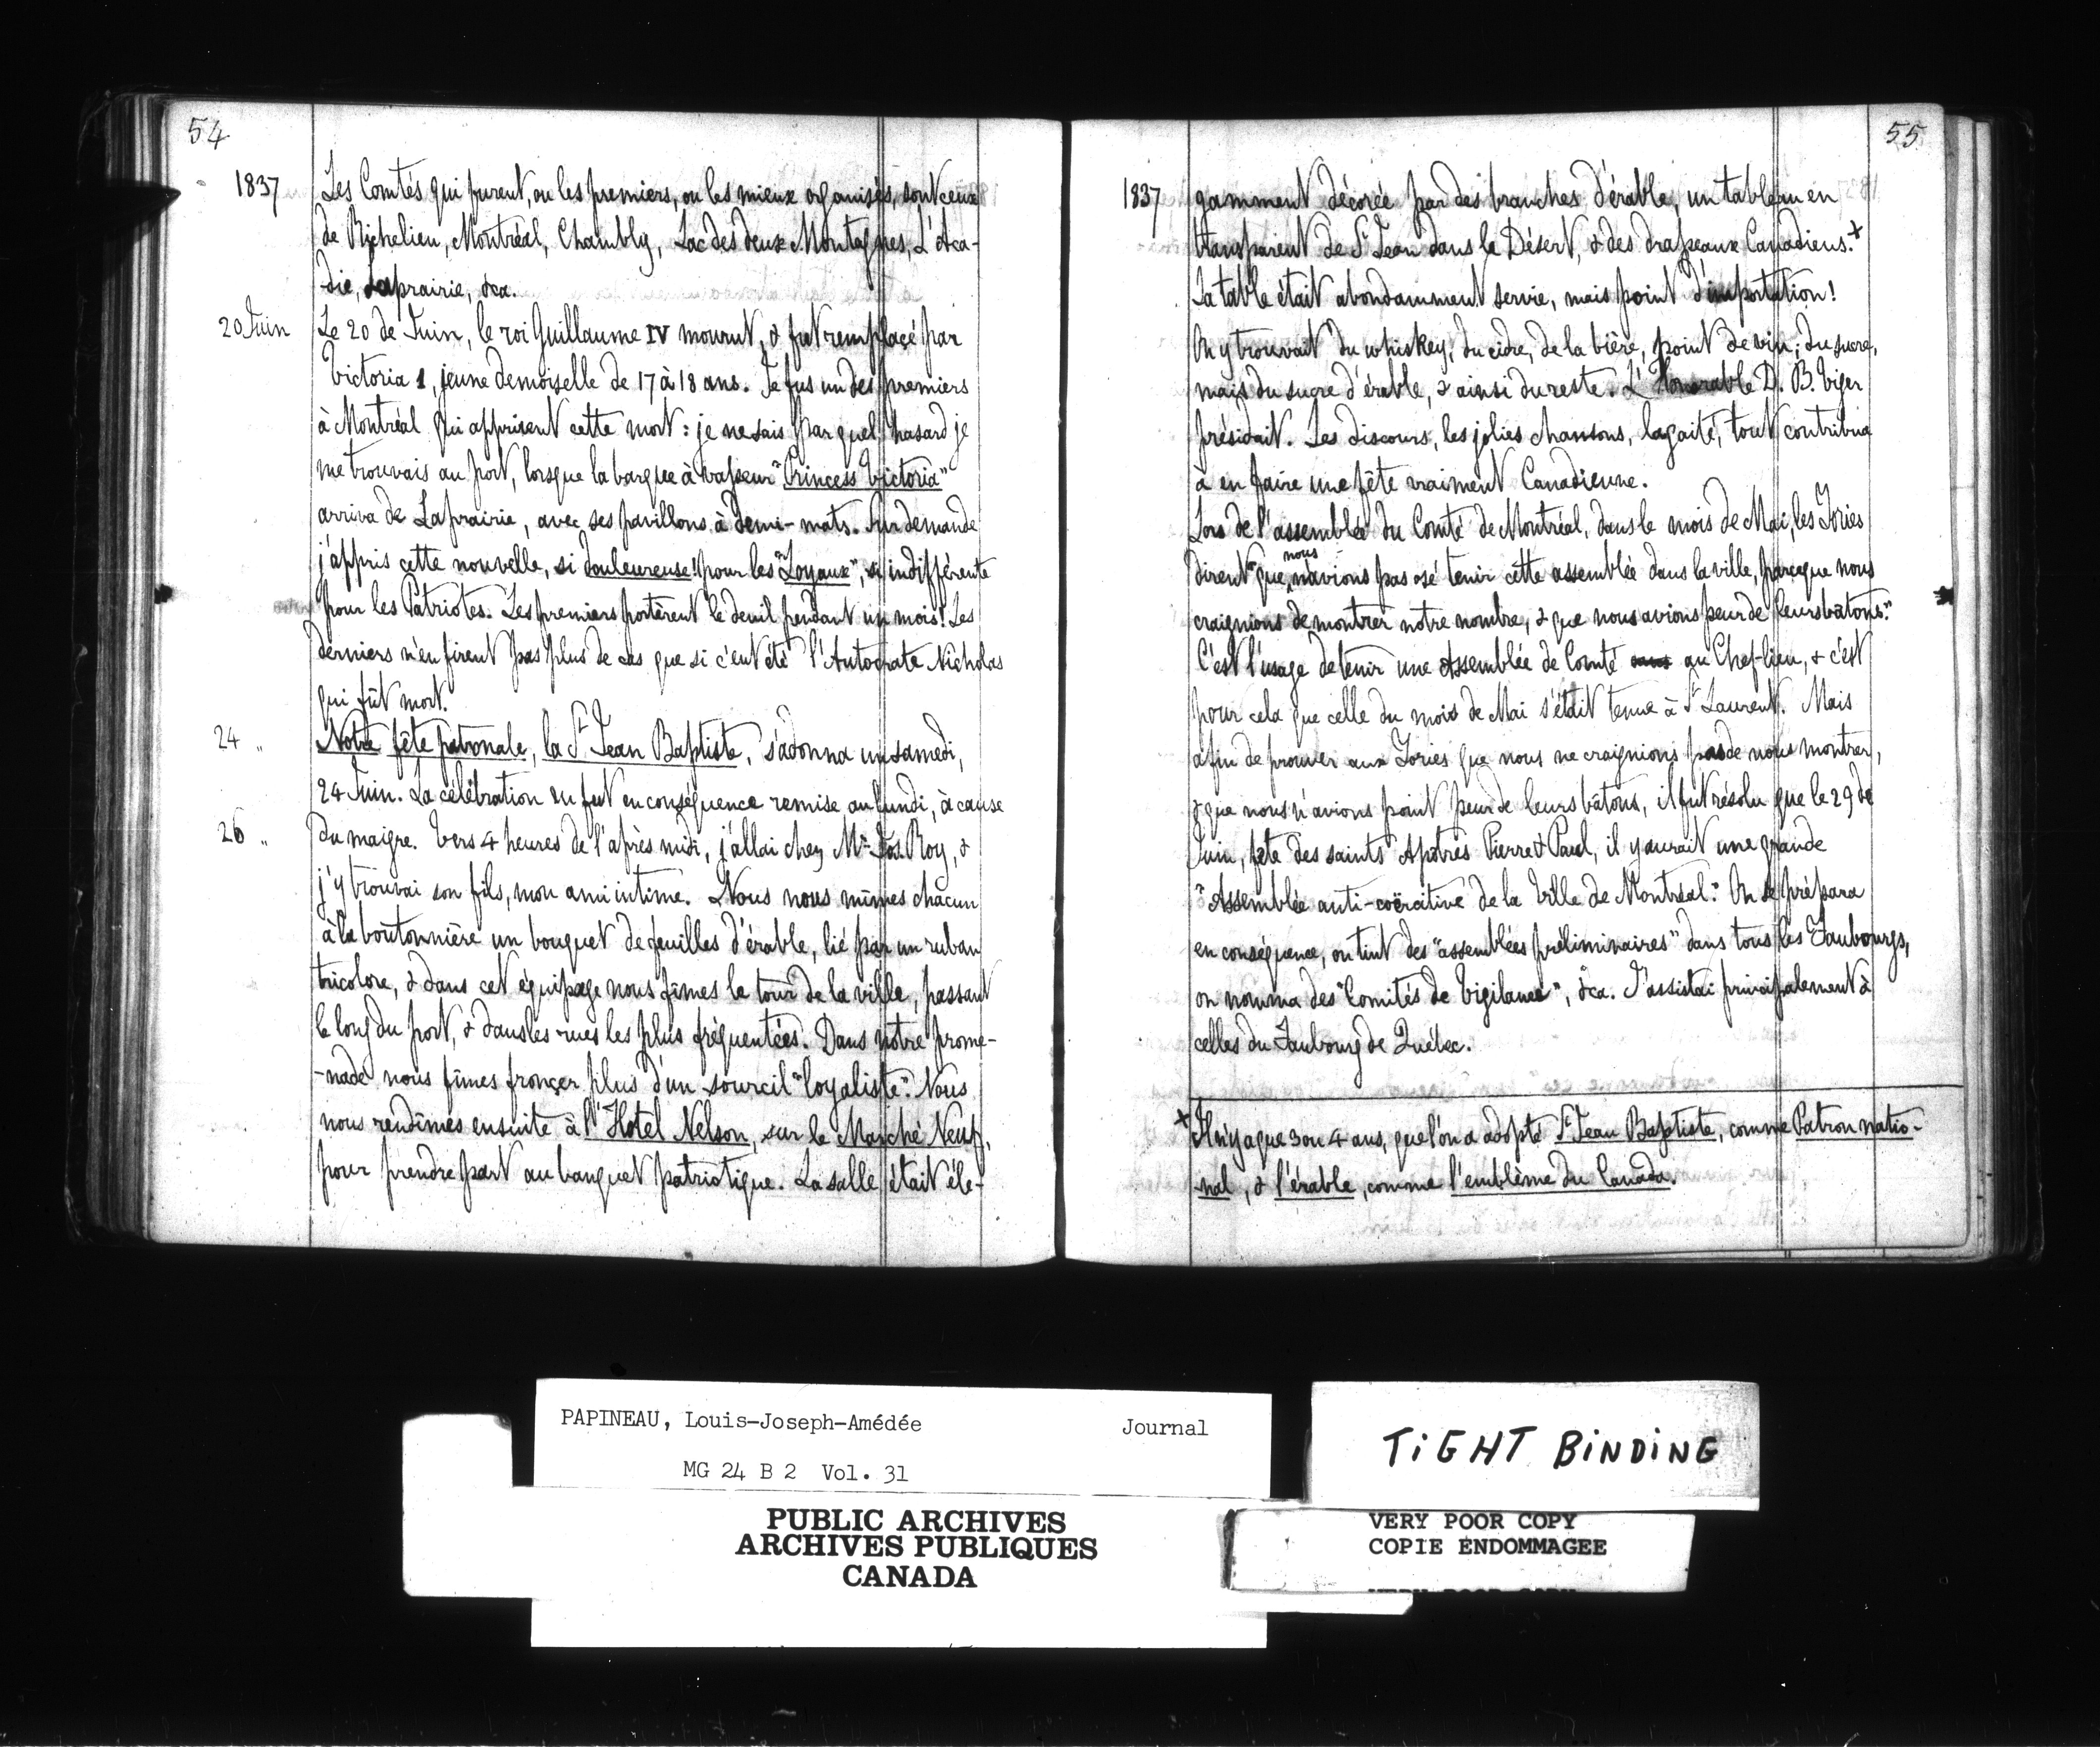 54
1837
Les Comtés qui furent, ou les premiers, ou les mieux organisés, sont ceux
de Richelieu, Montréal, Chambly, Lac des deux Montagnes, L'Aca-
die, Laprairie, &ca.
20 Juin
Le 20 de Juin, le roi Guillaume IV mourut, & fut remplacé par
Victoria 1, jeune demoiselle de 17 à 18 ans. Je fus un des premiers
à Montréal qui apprirent cette mort : je ne sais par quel hasard je
me trouvais au port, lorsque la barque à vapeur "Princess Victoria"
arriva de Laprairie, avec ses pavillons à demi-mats. Sur demande
j'appris cette nouvelle, si douleureuse! pour les "Loyaux", si indifférente
pour les Patriotes. Les premiers portèrent le deuil pendant un mois! Les
derniers n'en firent pas plus de cas que si c'eut été l'Autocrate Nicholas
qui fût mort.
24 "
Notre fête patronale, la St Jean Baptiste, s'adonna un samedi,
24 Juin. La célébration en fut en conséquence remise au lundi, à cause
26 "
du maigre. Vers 4 heures de l'après midi, j'allai chez Mr. Jos. Roy, &
j'y trouvai son fils, mon ami intime. Nous nous mîmes chacun
à la boutonnière un bouquet de feuilles d'érable, lié par un ruban
tricolore, & dans cet équipage nous fîmes le tour de la ville, passant
le long du port, & dans les rues les plus fréquentées. Dans notre prome-
-nade nous fîmes fronçer plus d'un sourcil "loyaliste". Nous
nous rendîmes ensuite à l'Hotel Nelson, sur le Marché Neuf,
pour prendre part au banquet patriotique. La salle était élé-
55
1837
gamment décorée par des branches d'érable, un tableau en
transparent de St Jean dans le Désert, & des drapeaux Canadiens.+
La table était abondamment servie, mais point d'importation!
On y trouvait du whiskey, du cidre, de la bière, point de vin; du sucre,
mais du sucre d'érable, & ainsi du reste. L'Honorable D. B. Viger
présidait. Les discours, les jolies chansons, la gaité, tout contribua
à en faire une fête vraiment Canadienne.
Lors de l'assemblée du Comté de Montréal, dans le mois de Mai, les Tories
dirent "que nous n'avions pas osé tenir cette assemblée dans la ville, parceque nous
craignions de montrer notre nombre, & que nous avions peur de leurs bâtons."
C'est l'usage de tenir une Assemblée de Comté au Chef-lieu, & c'est
pour cela que celle du mois de Mai s'était tenue à St Laurent. Mais
afin de prouver aux Tories que nous ne craignions pas de nous montrer,
& que nous n'avions point peur de leurs bâtons, il fut résolu que le 29 de
Juin, fête des saints Apôtres Pierre & Paul, il y aurait une grande
"Assemblée anti-coërcitive de la Ville de Montréal." On se prépara
en conséquence, on tint des "assemblées préliminaires" dans tous les Faubourgs,
on nomma des "Comités de Vigilance", &ca. J'assistai principalement à
celles du Faubourg de Québec.
+ Il n'y a que 3 ou 4 ans, que l'on a adopté St Jean Baptiste, comme Patron natio-
-nal, & l'érable, comme l'emblème du Canada.
PAPINEAU, Louis-Joseph-Amédée Journal
MG 24 B 2 Vol. 31
PUBLIC ARCHIVES
ARCHIVES PUBLIQUES
CANADA
TIGHT BINDING
VERY POOR COPY
COPIE ENDOMMAGEE